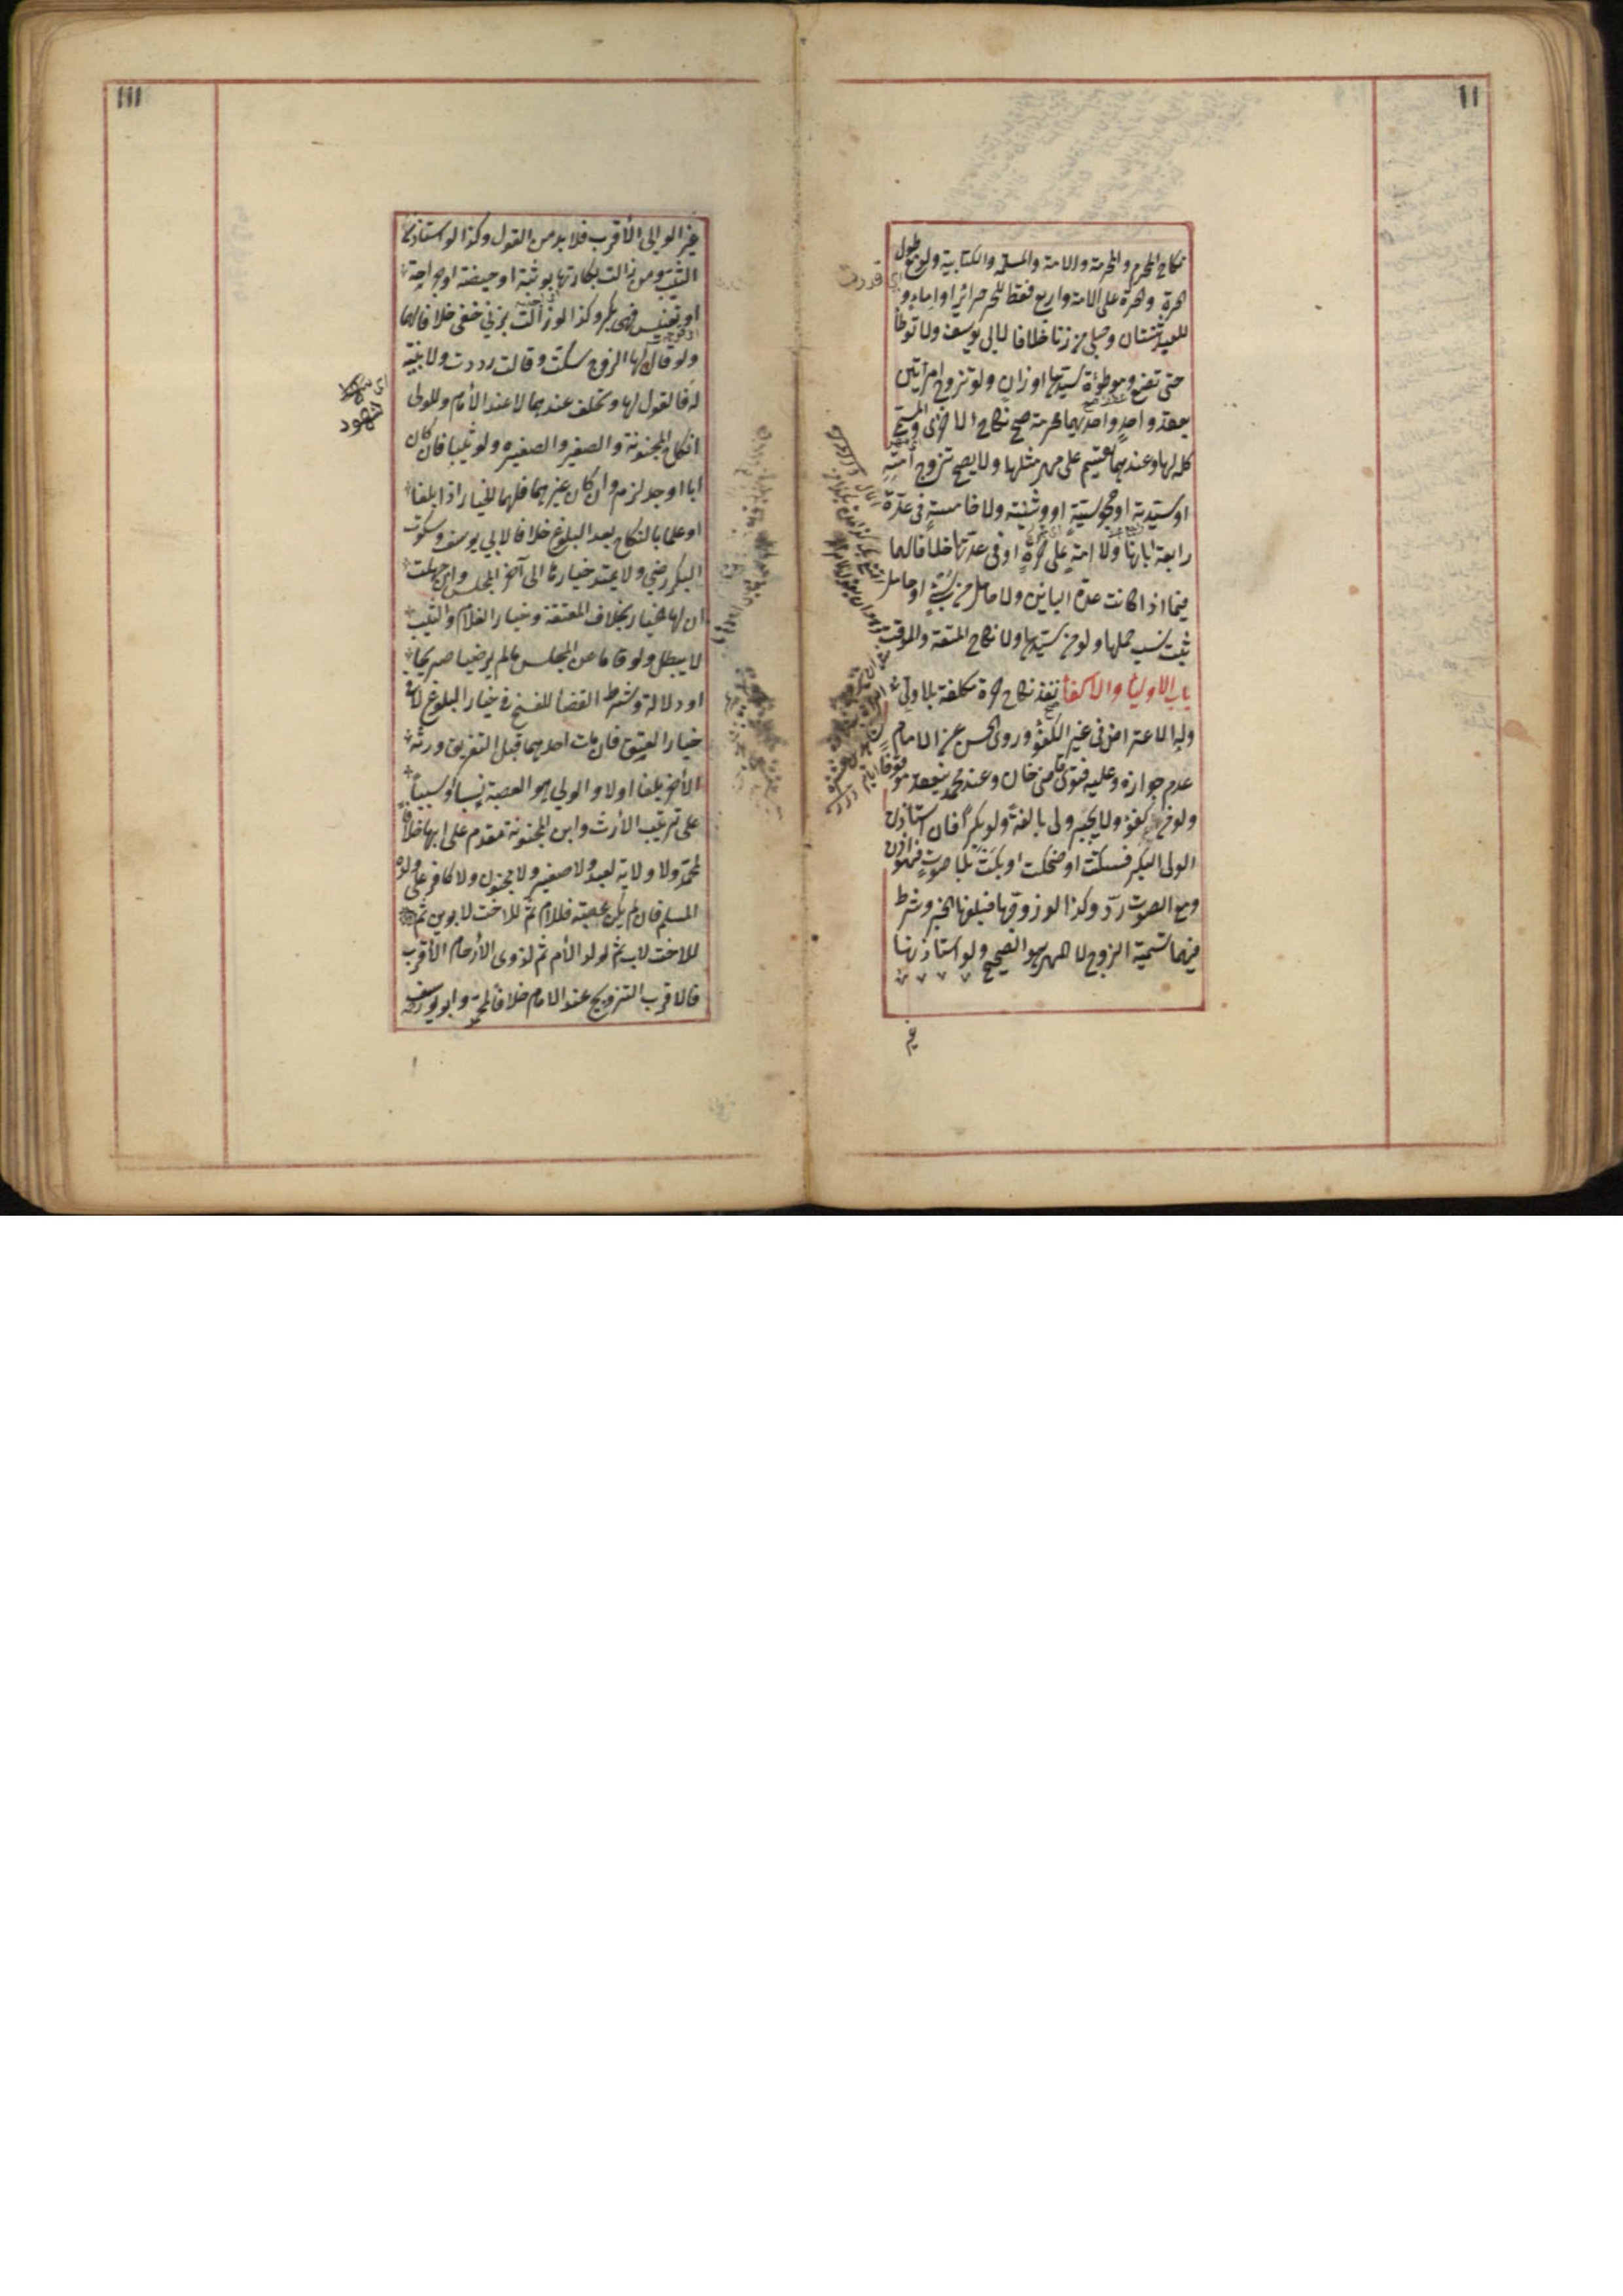 نكاح المحرم والمحرمة والامة والمسلمة والكتابية ولو مع طول
حرة وحرة على الامة واربع فقط للحر حرائر او اماء و
للعبد ثنتان وحبلى من زنا خلافا لابى يوسف ولا توطأ
حتى تضع وموطؤة سيدها او زان ولو تزوج امرأتين
بعقد واحد واحديهما محرمة صح نكاح الاخرى والمسمى
كله لها وعندهما يقسم على مهر مثلها ولا يصح تزوج امته
او سيدته او مجوسية او وثنية ولا خامسة فى عدة
رابعة ابانها ولا امة على حرة او فى عدتها خلافا لهما
فيما اذا كانت عدة البائن ولا حامل من سبى او حامل
ثبت نسب حملها ولو من سيدها ولا نكاح المتعة والموقت
باب الاولياء والاكفاء نفذ نكاح حرة مكلفة بلا ولى
وله الاعتراض فى غير الكفؤ وروى الحسن عن الامام
عدم جوازه وعليه فتوى قاضى خان وعند محمد ينعقد موقوفا
ولو من كفؤ ولا يجبر ولى بالغة ولو بكرا فان استأذن
الولى البكر فسكتت او ضحكت او بكت بلا صوت فهو اذن
ومع الصوت رد وكذا لو زوجها فبلغها الخبر وشرط
فيهما تسمية الزوج لا المهر هو الصحيح ولو استأذنها
غير
غير الولى الأقرب فلا بد من القول وكذا لو استأذن
الثيب ومن زالت بكارتها بوثبة او حيضة او جراحة
او تعنيس فهى بكر وكذا لو زالت بزنى خفى خلافا لهما
ولو قال لها الزوج سكت وقالت رددت ولا بينة
له فالقول لها وتحلف عندهما لا عند الأمام وللولى
انكاح المجنونة والصغير والصغيرة ولو ثيبا فان كان
ابا او جد لزم وان كان غيرهما فلهما الخيار اذا بلغا
او علما بالنكاح بعد البلوغ خلافا لابى يوسف وسكوت
البكر رضى ولا يمتد خيارها الى آخر المجلس وان جهلت
ان لها خيار بخلاف المعتقة وخيار الغلام والثيب
لا يبطل ولو قاما عن المجلس مالم يرضيا صريحا
او دلالة وشرط القضأ للفسخ فى خيار البلوغ لا فى
خيار العتق فان مات احدهما قبل التفريق ورثه
الأخر بلغا اولا والولى هو العصبة نسبا او سببا
على ترتيب الأرث وابن المجنونة مقدم على ابيها خلافا
لمحمد ولا ولاية لعبد ولا صغير ولا مجنون ولا كافر على ولده
المسلم فان لم يكن عصبة فللام ثم للاخت لابوين ثم
للاخت لاب ثم لولد الأم ثم لذوى الأرحام الأقرب
فالاقرب التزويج عند الامام خلافا لمحمد وابو يوسف
اى
شهود